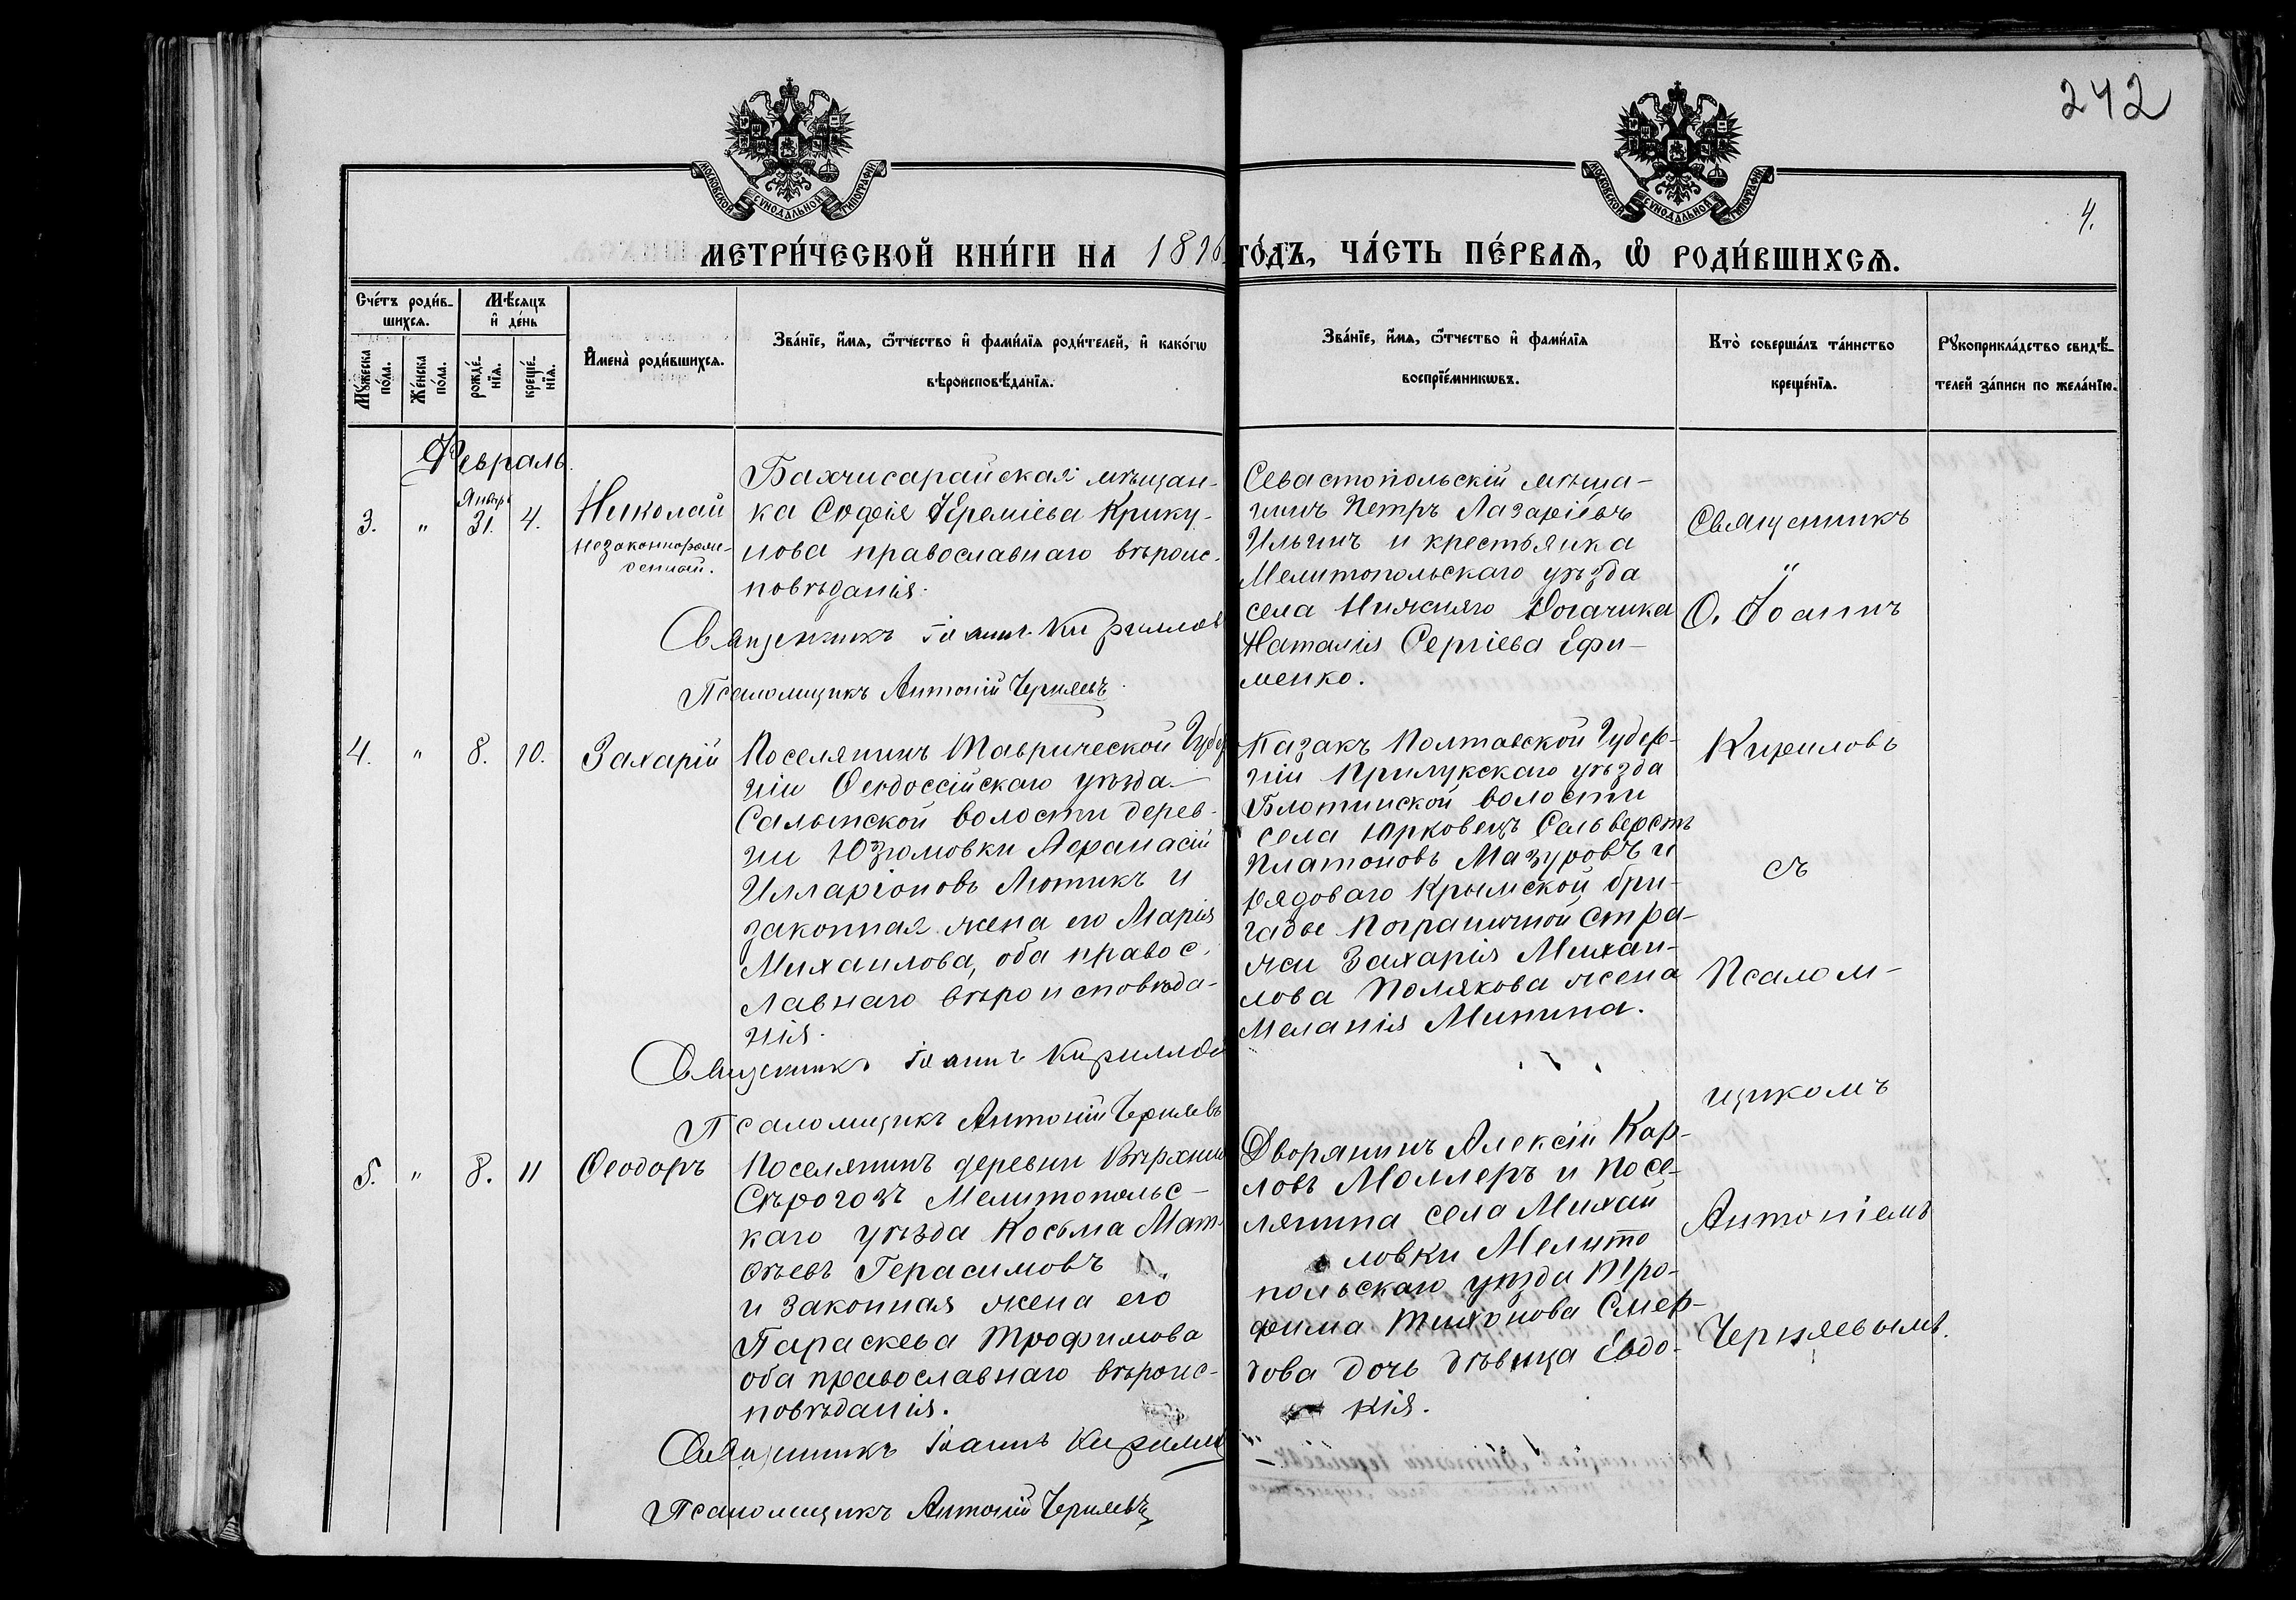 242
4.
МОСКОВСКОЙ СѴНОДАЛЬНОЙ ТИПОГРАФІИ
МОСКОВСКОЙ СѴНОДАЛЬНОЙ ТИПОГРАФІИ
МЕТРИ́ЧЕСКОЙ КНИ́ГИ НА 1896 ГО́ДЪ, ЧА́СТЬ ПЕ́РВАѦ, Ѡ҆ РОДИ́ВШИХСѦ.
Сче́тъ роди́в-
шихсѧ.
Мꙋ́жеска
по́ла.
Же́нска
по́ла.
Мѣ́сѧцъ
и҆ де́нь
рожде́-
нїѧ.
креще́-
нїѧ.
И҆мена̀ роди́вшихсѧ.
Зва́нїе, и҆́мѧ, ѻ҆́тчество и҆ фами́лїѧ роди́телей, и҆ како́гѡ
вѣроисповѣ́данїѧ.
Зва́нїе, и҆́мѧ, ѻ҆́тчество и҆ фами́лїѧ
воспрїе́мникѡвъ.
Кто̀ соверша́лъ та́инство
креще́нїѧ.
Рꙋкоприкла́дство свидѣ́-
телей за́писи по жела́нїю.
Февраль.
3. " Январь 31. 4.
Николай
незаконнорож-
денный.
Бахчисарайская мѣщан-
ка Софія Іереміева Крику-
нова православнаго вѣроис-
повѣданія.
Священникъ Іоаннъ Кириллов
Псаломщикъ Антоній Черняевъ
Севастопольскій мѣща-
нинъ Петръ Лазаріевъ
Ильинъ и крестьянка
Мелитопольскаго уѣзда
села Нижняго Рогачика
Наталія Сергіева Ефи-
менко.
4. " 8. 10. Захарій
Поселянинъ Таврической Губер
ніи Ѳеодоссійскаго уѣзда
Салынской волости дерев-
ни Юзюмовки Аѳанасій
Илларіоновъ Лютикъ и
законная жена его Марія
Михаилова, оба правос-
лавнаго вѣроисповѣда-
нія.
Священникъ Іоаннъ Кириллов
Псаломщикъ Антоній Черняевъ
Казакъ Полтавской Губер-
ніи Прилукскаго уѣзда
села Юрковецъ Сельверстъ
Платоновъ Мазуровъ и
рядоваго Крымской бри-
гады Пограничной Стра-
жи Захарія Михаи-
лова Полякова жена
Меланія Минина.
5. " 8. 11 Ѳеодоръ
Поселянинъ деревни Верхнихъ
Сѣрогозъ Мелитопольс-
каго уѣзда Косьма Мат-
ѳѣевъ Герасимовъ
и законная жена его
Параскева Трофимова
оба православнаго вѣроис-
повѣданія.
Священникъ Іоаннъ Кирилло
Псаломщикъ Антоній Черняевъ
Дворянинъ Алексій Кар-
ловъ Моллеръ и посе-
лянина села Михай
ловки Мелито
польскаго уѣзда Тро-
фима Тихонова Смер-
дова дочь дѣвица Евдо-
кія.
Священникъ
О. Іоаннъ
Кириловъ
съ
Псалом-
щикомъ
Антоніемъ
Черняевымъ.